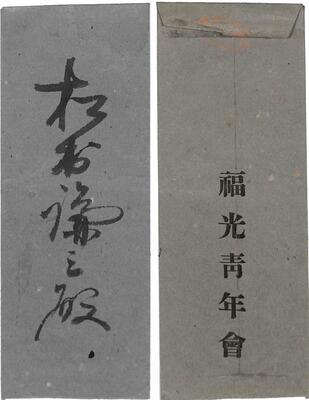 松村謙三殿
福光青年會